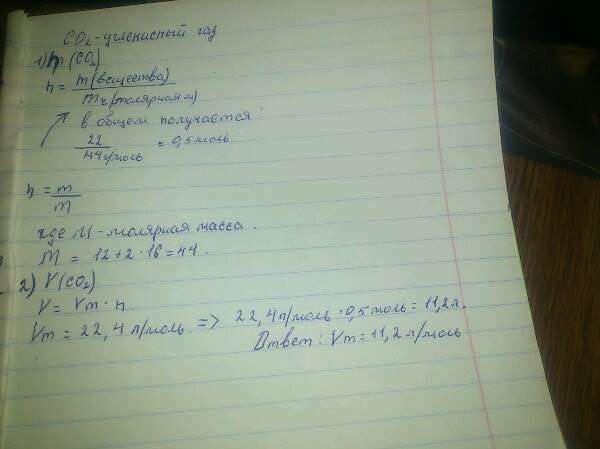 CO₂ - углекислый газ
1) n (CO₂)
n = m (вещества) / Mr (молярная м)
в общем получается:
22 / 44 г/моль = 0,5 моль
n = m / M
где M - молярная масса.
M = 12 + 2 · 16 = 44.
2) V (CO₂)
V = Vm · n.
Vm = 22,4 л/моль. => 22,4 л/моль · 0,5 моль = 11,2 л.
Ответ: Vm = 11,2 л/моль